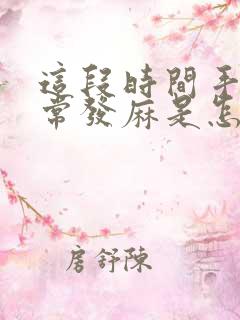 這段時間手
常發麻是怎
房舒陳